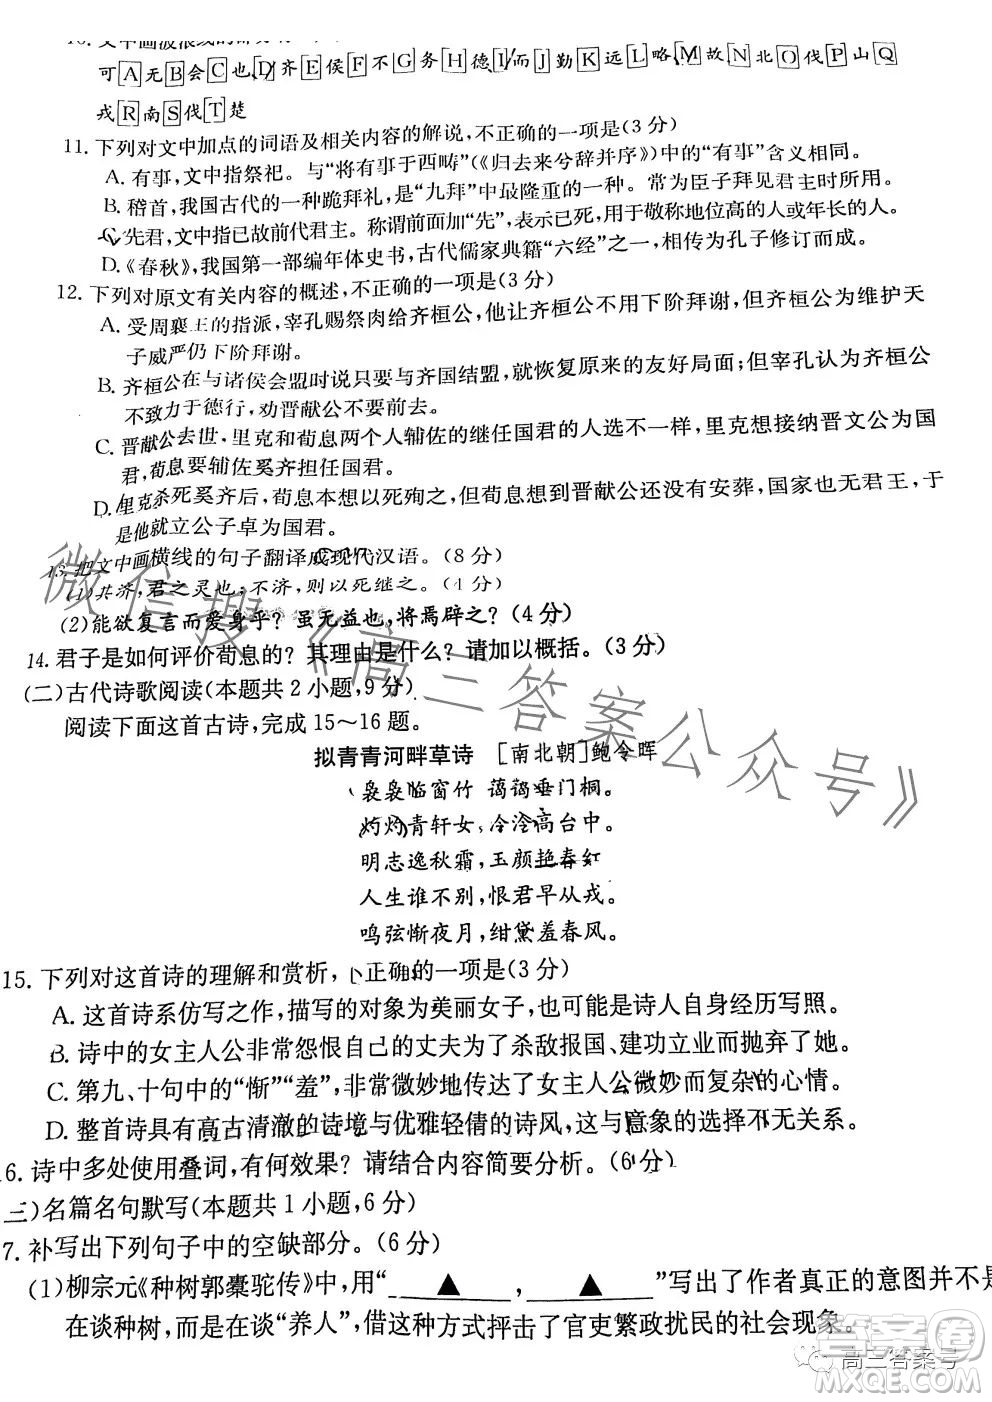 可A无B会C也D齐E侯F不G务H德I而J勤K远L略M故N北O伐P山Q
戎R南S伐T楚
11. 下列对文中加点的词语及相关内容的解说,不正确的一项是(3分)
A. 有事,文中指祭祀。与“将有事于西畴”(《归去来兮辞并序》)中的“有事”含义相同。
B. 稽首,我国古代的一种跪拜礼,是“九拜”中最隆重的一种。常为臣子拜见君主时所用。
C. 先君,文中指已故前代君主。称谓前面加“先”,表示已死,用于敬称地位高的人或年长的人。
D.《春秋》,我国第一部编年体史书,古代儒家典籍“六经”之一,相传为孔子修订而成。
12. 下列对原文有关内容的概述,不正确的一项是(3分)
A. 受周襄王的指派,宰孔赐祭肉给齐桓公,他让齐桓公不用下阶拜谢,但齐桓公为维护天
子威严仍下阶拜谢。
B. 齐桓公在与诸侯会盟时说只要与齐国结盟,就恢复原来的友好局面;但宰孔认为齐桓公
不致力于德行,劝晋献公不要前去。
C. 晋献公去世,里克和荀息两个人辅佐的继任国君的人选不一样,里克想接纳晋文公为国
君,荀息要辅佐奚齐担任国君。
D. 里克杀死奚齐后,荀息本想以死殉之,但荀息想到晋献公还没有安葬,国家也无君王,于
是他就立公子卓为国君。
13. 把文中画横线的句子翻译成现代汉语。(8分)
(1)其济,君之灵也;不济,则以死继之。(4分)
(2)能欲复言而爱身乎?虽无益也,将焉辟之?(4分)
14. 君子是如何评价荀息的?其理由是什么?请加以概括。(3分)
(二)古代诗歌阅读(本题共2小题,9分)
阅读下面这首古诗,完成15~16题。
拟青青河畔草诗 [南北朝]鲍令晖
袅袅临窗竹 蔼蔼垂门桐。
灼灼青轩女,泠泠高台中。
明志逸秋霜,玉颜艳春红
人生谁不别,恨君早从戎。
鸣弦惭夜月,绀黛羞春风。
15. 下列对这首诗的理解和赏析,不正确的一项是(3分)
A. 这首诗系仿写之作,描写的对象为美丽女子,也可能是诗人自身经历写照。
B. 诗中的女主人公非常怨恨自己的丈夫为了杀敌报国、建功立业而抛弃了她。
C. 第九、十句中的“惭”“羞”,非常微妙地传达了女主人公微妙而复杂的心情。
D. 整首诗具有高古清澈的诗境与优雅轻倩的诗风,这与意象的选择不无关系。
6. 诗中多处使用叠词,有何效果?请结合内容简要分析。(6分)
三)名篇名句默写(本题共1小题,6分)
7. 补写出下列句子中的空缺部分。(6分)
(1)柳宗元《种树郭橐驼传》中,用“▲,▲”写出了作者真正的意图并不是
在谈种树,而是在谈“养人”,借这种方式抨击了官吏繁政扰民的社会现象。
微信搜《高三答案公众号》
高三答案号
答案圈
MXQE.COM